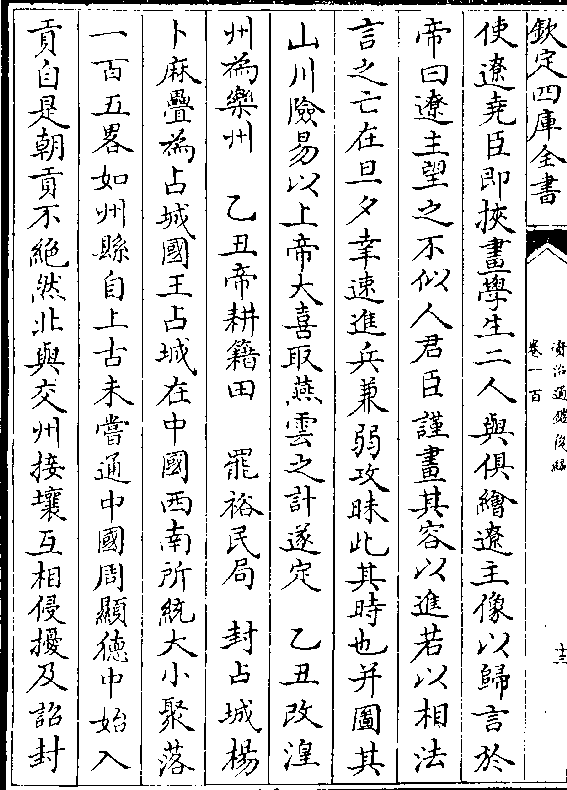 欽定四庫全書
資治通鑑後編
卷一百
十三
使遼堯臣即挾畫學生二人與俱繪遼主像以歸言於
帝曰遼主望之不似人君臣謹畫其容以進若以相法
言之亡在旦夕幸速進兵兼弱攻昧此其時也并圖其
山川險易以上帝大喜取燕雲之計遂定　乙丑改湟
州為樂州　乙丑帝耕籍田　罷裕民局　封占城楊
卜麻疊為占城國王占城在中國西南所統大小聚落
一百五畧如州縣自上古未嘗通中國周顯德中始入
貢自是朝貢不絶然北與交州接壤互相侵擾及詔封